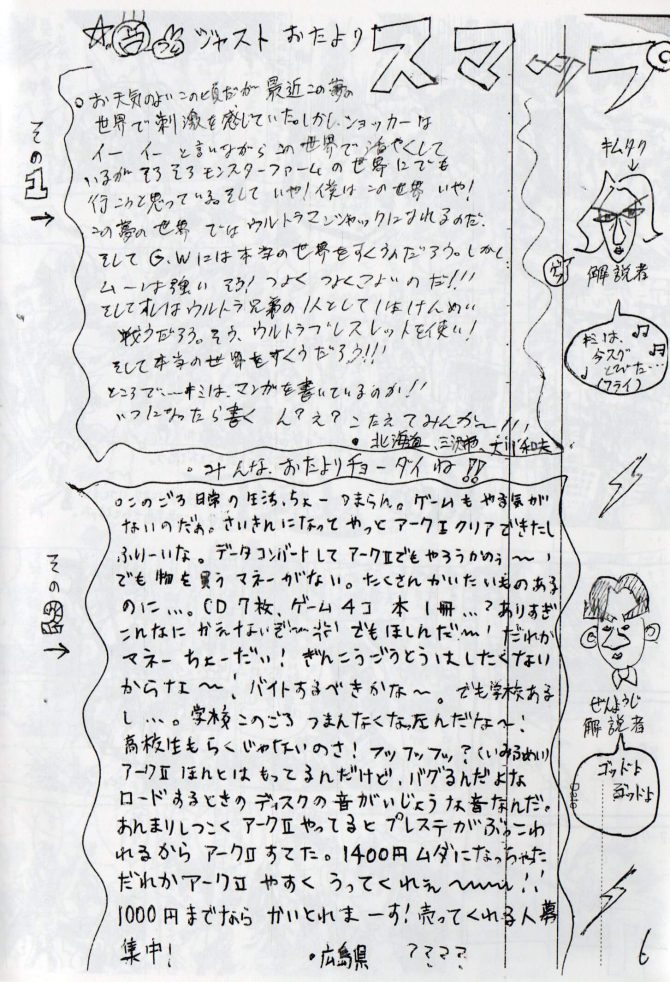 ジャスト おたより スマップ
その1→
。お天気のよいこの頃だが最近この夢の
世界で刺激を感じていた。しかし、ショッカーは
イー イー と言いながらこの世界で活やくして
いるが そろそろモンスターファームの世界にでも
行こうと思っている。そして いや!僕はこの世界 いや!
この夢の世界 ではウルトラマンジャックになれるのだ.
そして G.Wには本当の世界をすくうんだろう。しかし
ムーは強い そう! つよく つよくつよいのだ!!!
そしてオレはウルトラ兄弟の1人として1生けんめい
戦うだろう。そう、ウルトラブレスレットを使い!
そして本当の世界をすくうだろう!!!
ところで〜キミは、マンガを書いているのか!!
いつになったら書く ん?え? こたえてみんか〜!!!
・北海道、三沢
。みんな、おたよりチョーダイね!!
その
。このごろ日常の生活、ちょーつまらん。ゲームもやる気が
ないのだぁ。さいきんになってやっとアークⅠクリアできたし
ふりーいな。データコンバートしてアークⅡでもやろうかのぅ〜、
でも物を買うマネーがない。たくさんかいたいものある
のに...。CD7枚、ゲーム4コ 本1冊...?ありすぎ
こんなに かえないぞ〜 でもほしんだ〜! だれか
マネーちょーだい! ぎんこうごうとうはしたくない
からな〜! バイトするべきかな〜。でも学校ある
し...。学校このごろ つまんなくなったんだな〜!
高校生もらくじゃないのさ! フッフッフッ?(いみふめい)
アークⅡほんとはもってるんだけど、バグるんだよな
ロードするときのディスクの音がいじょうな音なんだ。
あんまりしつこくアークⅡやってるとプレステがぶっこわ
れるから アークⅡすてた。1400円ムダになっちゃた
だれかアークⅡ やすく うってくれぇ〜!!
1000円までなら かいとれまーす! 売ってくれる人募
集中! ・広島県 ????
キムタク
解説者
キミは、
今スグ
とびた...
(フライ)
せんようじ
解説者
ゴットよ
ゴットよ
Date
6